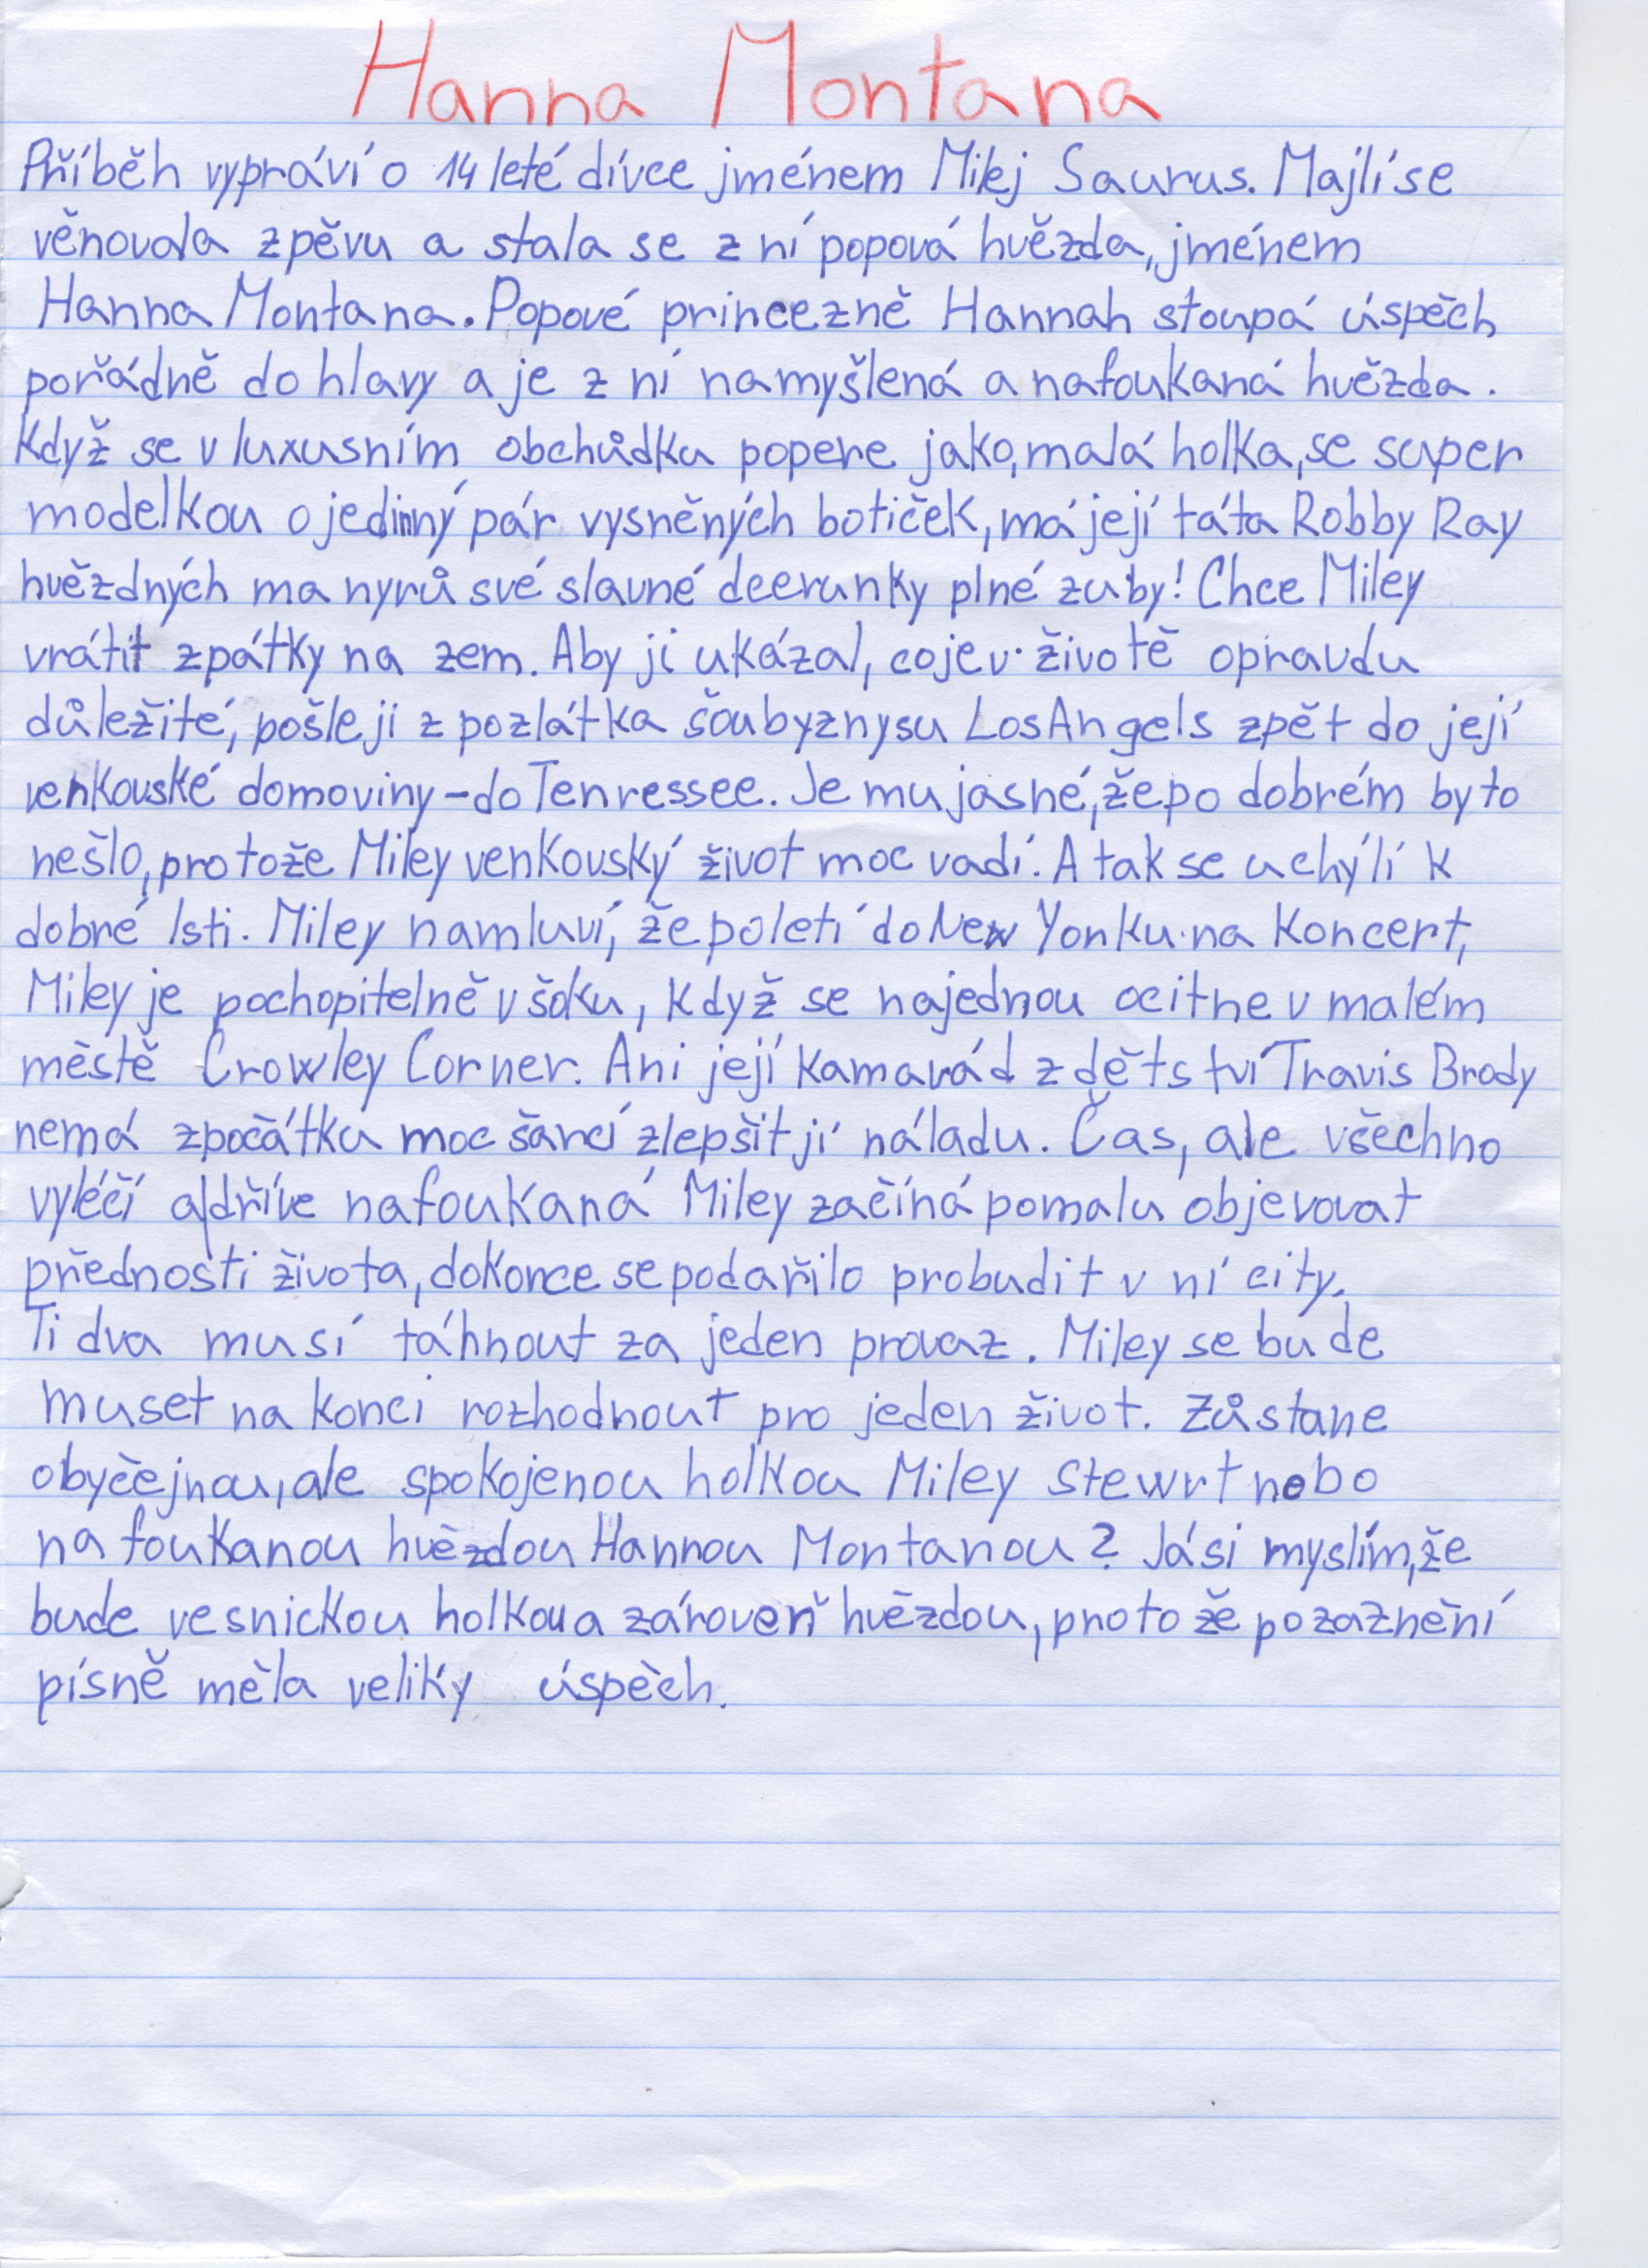 Hanna Montana
Příběh vypráví o 14 leté dívce jménem Milej Saurus. Majlí se
věnovala zpěvu a stala se z ní popová hvězda, jménem
Hanna Montana. Popové princezně Hannah stoupá úspěch
pořádně do hlavy a je z ní namyšlená a nafoukaná hvězda.
Když se v luxusním obchůdku popere jako, malá holka, se super
modelkou o jedinný pár vysněných botiček, má její táta Robby Ray
hvězdných manyrů své slavné dcerunky plné zuby! Chce Miley
vrátit zpátky na zem. Aby jí ukázal, co je v životě opravdu
důležité, pošle ji z pozlátka šoubyznysu Los Angels zpět do její
venkovské domoviny - do Tenressee. Je mu jasné, že po dobrém by to
nešlo, protože Miley venkovský život moc vadí. A tak se uchýlí k
dobré lsti. Miley namluví, že poletí do New Yorku na koncert,
Miley je pochopitelně v šoku, když se najednou ocitne v malém
městě Crowley Corner. Ani její kamarád z dětství Travis Brody
nemá zpočátku moc šancí zlepšit jí náladu. Čas, ale všechno
vyléčí a dříve nafoukaná Miley začíná pomalu objevovat
přednosti života, dokonce se podařilo probudit v ní city.
Ti dva musí táhnout za jeden provaz. Miley se bude
muset na konci rozhodnout pro jeden život. Zůstane
obyčejnou, ale spokojenou holkou Miley Stewrt nebo
nafoukanou hvězdou Hannou Montanou? Já si myslím, že
bude vesnickou holkou a zároveň hvězdou, protože po zaznění
písně měla veliký úspěch.